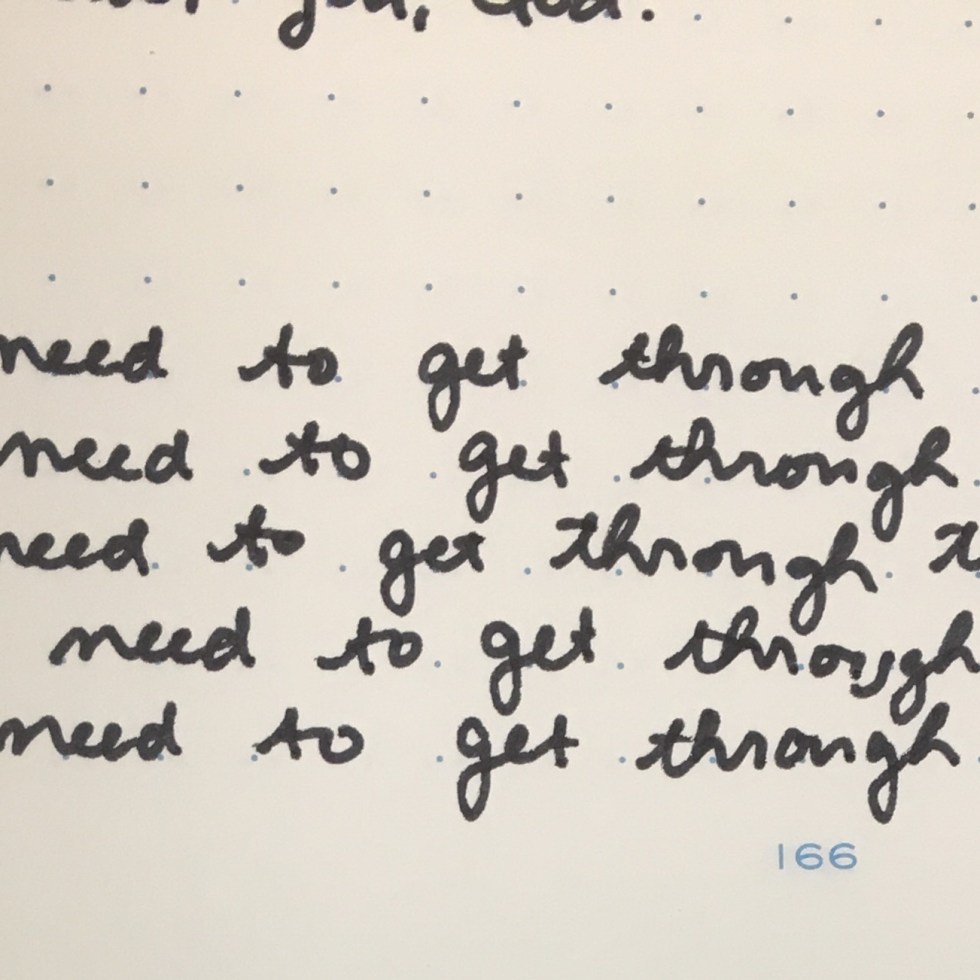 you, God.
need to get through
need to get through
need to get through
need to get through
need to get through
166